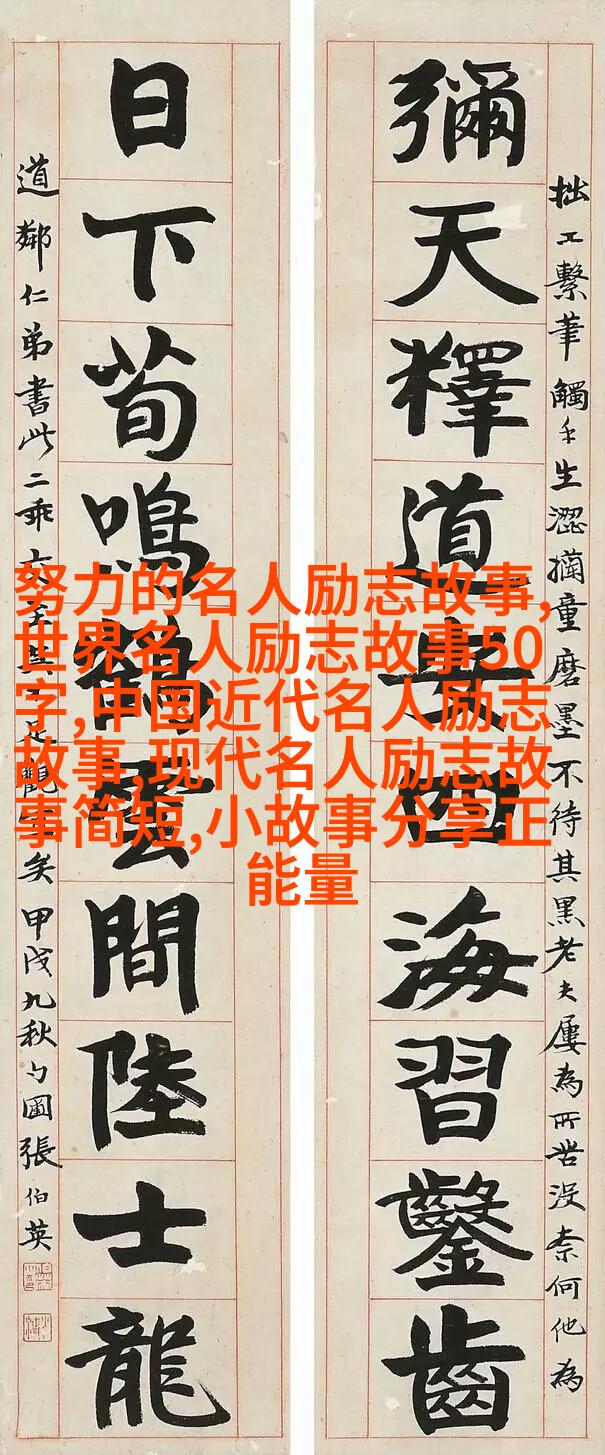 彌天釋道安四海習鑿齒
拙工繫筆觸手生澀童磨墨不待其黑老夫屢為所苦沒奈何他為
日下荀鳴鶴雲間陸士龍
道鄰仁弟書此二乖
矣甲戌九秋勺圃張伯英
努力的名人励志故事,
世界名人励志故事50
字,中国近代名人励志
故事,现代名人励志故
事简短,小故事分享正
能量